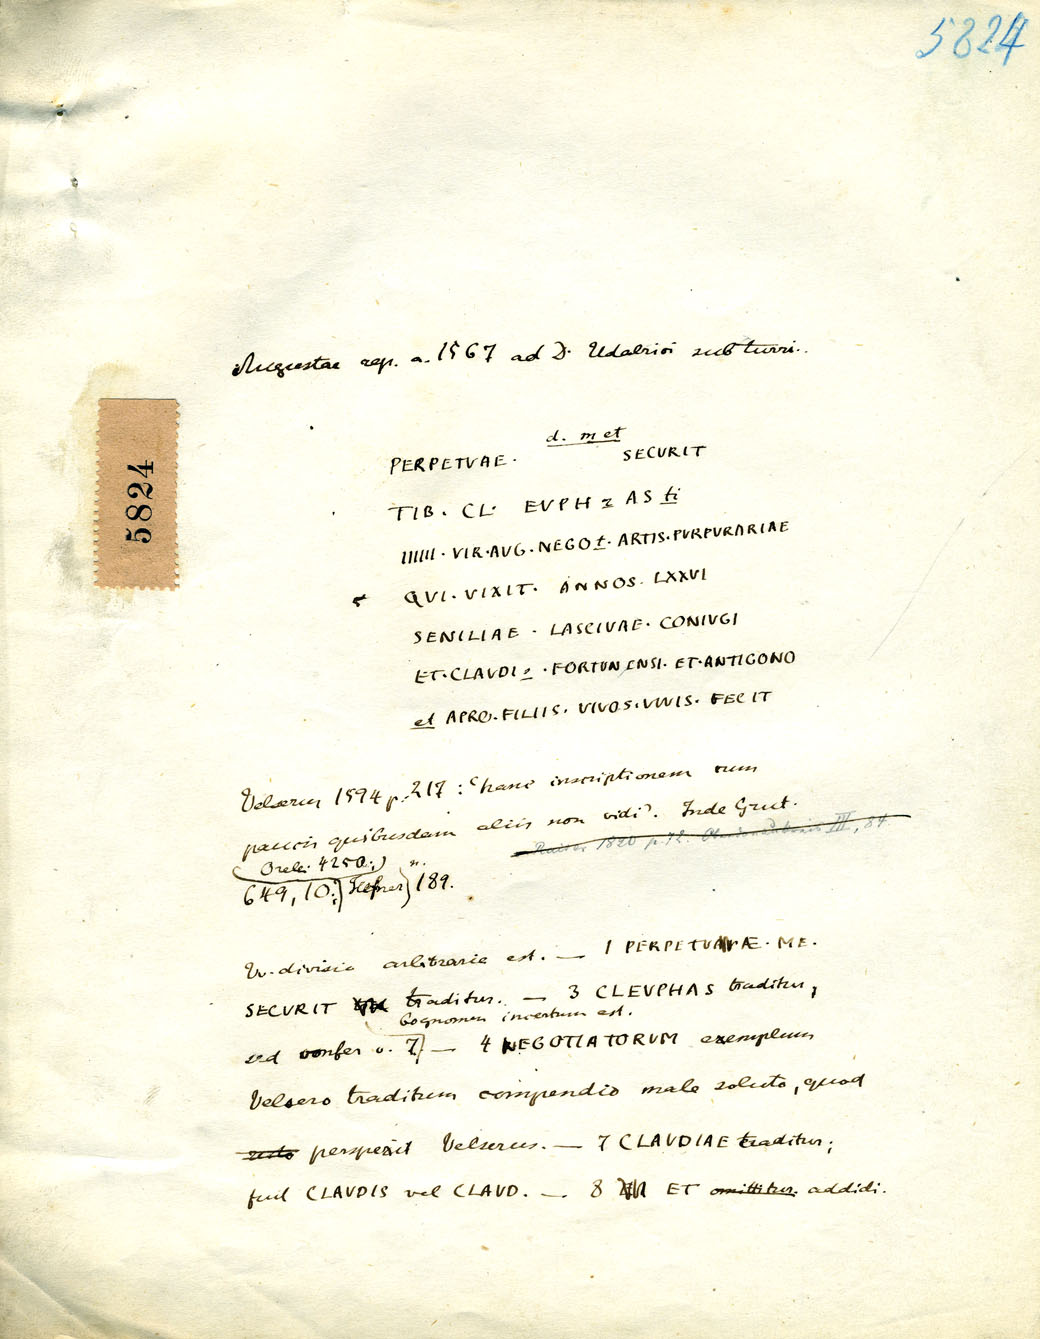 5824
5824
Augustae rep. a. 1567 ad D. Udalrici sub turri.
d. m et
PERPETVAE · SECURIT
TIB. CL. EVPH z AS ti
IIIIII · VIR · AUG · NEGOt · ARTIS · PURPURARIAE
QVI · VIXIT · ANNOS · LXXVI
SENILIAE · LASCIVAE · CONIVGI
ET · CLAVDIs · FORTUNENSI · ET · ANTIGONO
et APRO · FILIIS · VIVOS · VIVIS · FECIT
Velserus 1594 p. 217: 'hanc inscriptionem cum
paucis quibusdam aliis non vidi'. Inde Grut.
Raiser 1820 p. 72. III, 84.
Orelli 4250;
649, 10; Hefner n. 189.
Vv. divisio arbitraria est. — 1 PERPETUAE · ME ·
SECVRIT traditur. — 3 CLEVPHAS traditur,
Cognomen incertum est.
sed confer v. 7 — 4 NEGOTIATORUM exemplum
Velsero traditum compendio male soluto, quod
perspexit Velserus. — 7 CLAVDIAE traditur;
fuit CLAVDIS vel CLAVD. — 8 ET omittitur addidi.